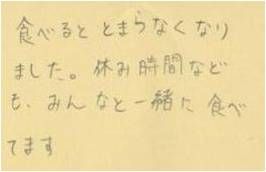 食べると とまらなくなり
ました。休み時間など
も、みんなと一緒に食べ
てます